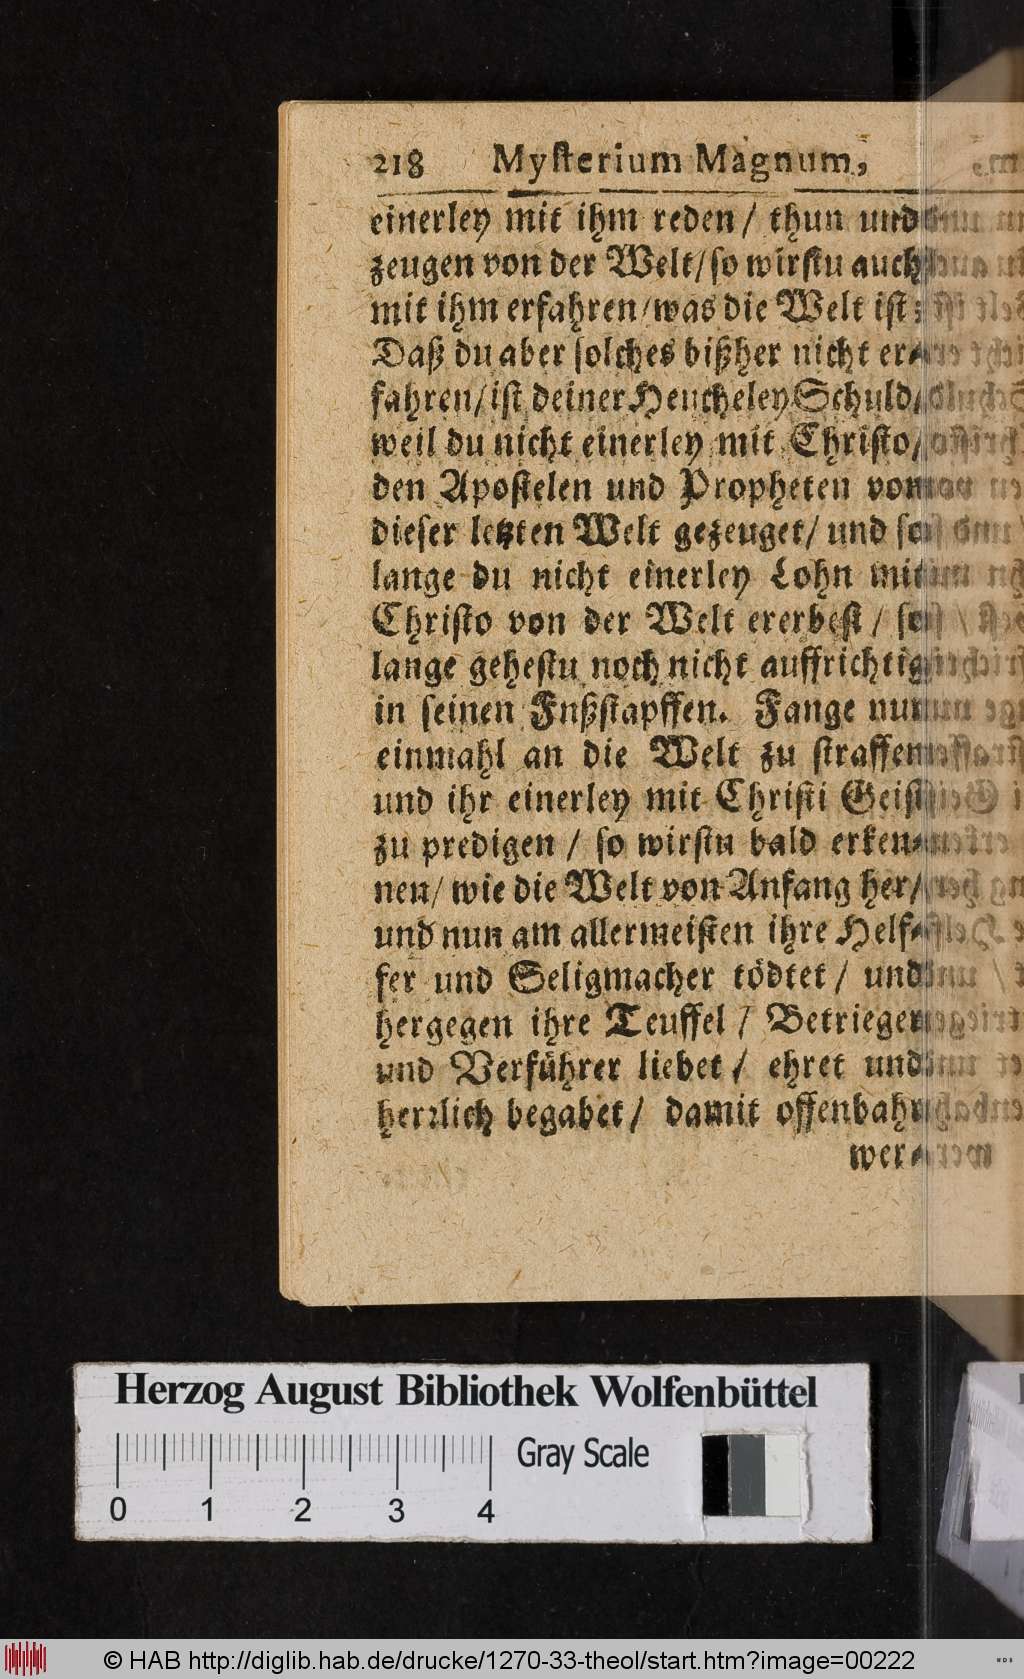 218 Mysterium Magnum,
einerley mit ihm reden / thun und
zeugen von der Welt / so wirstu auch
mit ihm erfahren / was die Welt ist:
Daß du aber solches bißher nicht er-
fahren / ist deiner Heucheley Schuld /
weil du nicht einerley mit Christo /
den Apostelen und Propheten von
dieser letzten Welt gezeuget / und so
lange du nicht einerley Lohn mit
Christo von der Welt ererbest / so
lange gehestu noch nicht auffrichtig
in seinen Fußstapffen. Fange nun
einmahl an die Welt zu straffen
und ihr einerley mit Christi Geist
zu predigen / so wirstu bald erken-
nen / wie die Welt von Anfang her /
und nun am allermeisten ihre Helf-
fer und Seligmacher tödtet / und
hergegen ihre Teuffel / Betrieger
und Verführer liebet / ehret und
herrlich begabet / damit offenbahr
wer-
Herzog August Bibliothek Wolfenbüttel
Gray Scale
0 1 2 3 4
© HAB http://diglib.hab.de/drucke/1270-33-theol/start.htm?image=00222